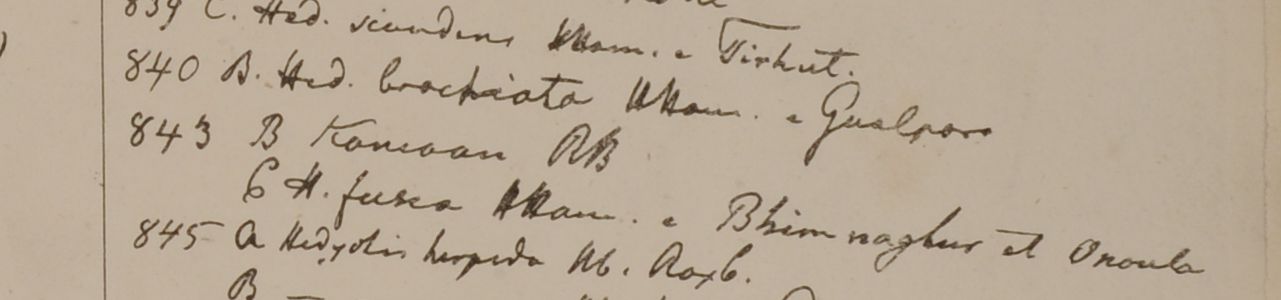 839 C. Hed. scandens HHam. e Tirhut.
840 B. Hed. brachiata HHam. e Gualpara
843 B Kamaon RB
C H. fusca HHam. e Bhimnaghur et
845 a Hedyotis hispida Hb. Roxb.
B